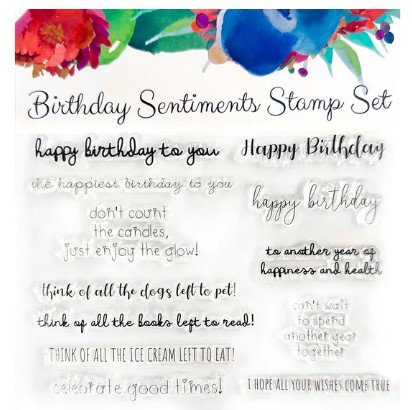 Birthday Sentiments Stamp Set
happy birthday to you
the happiest birthday to you
don't count
the candles,
just enjoy the glow!
think of all the dogs left to pet!
think of all the books left to read!
THINK OF ALL THE ICE CREAM LEFT TO EAT!
celebrate good times!
Happy Birthday
happy birthday
to another year of
happiness and health
can't wait
to spend
another year
together
I HOPE ALL YOUR WISHES COME TRUE